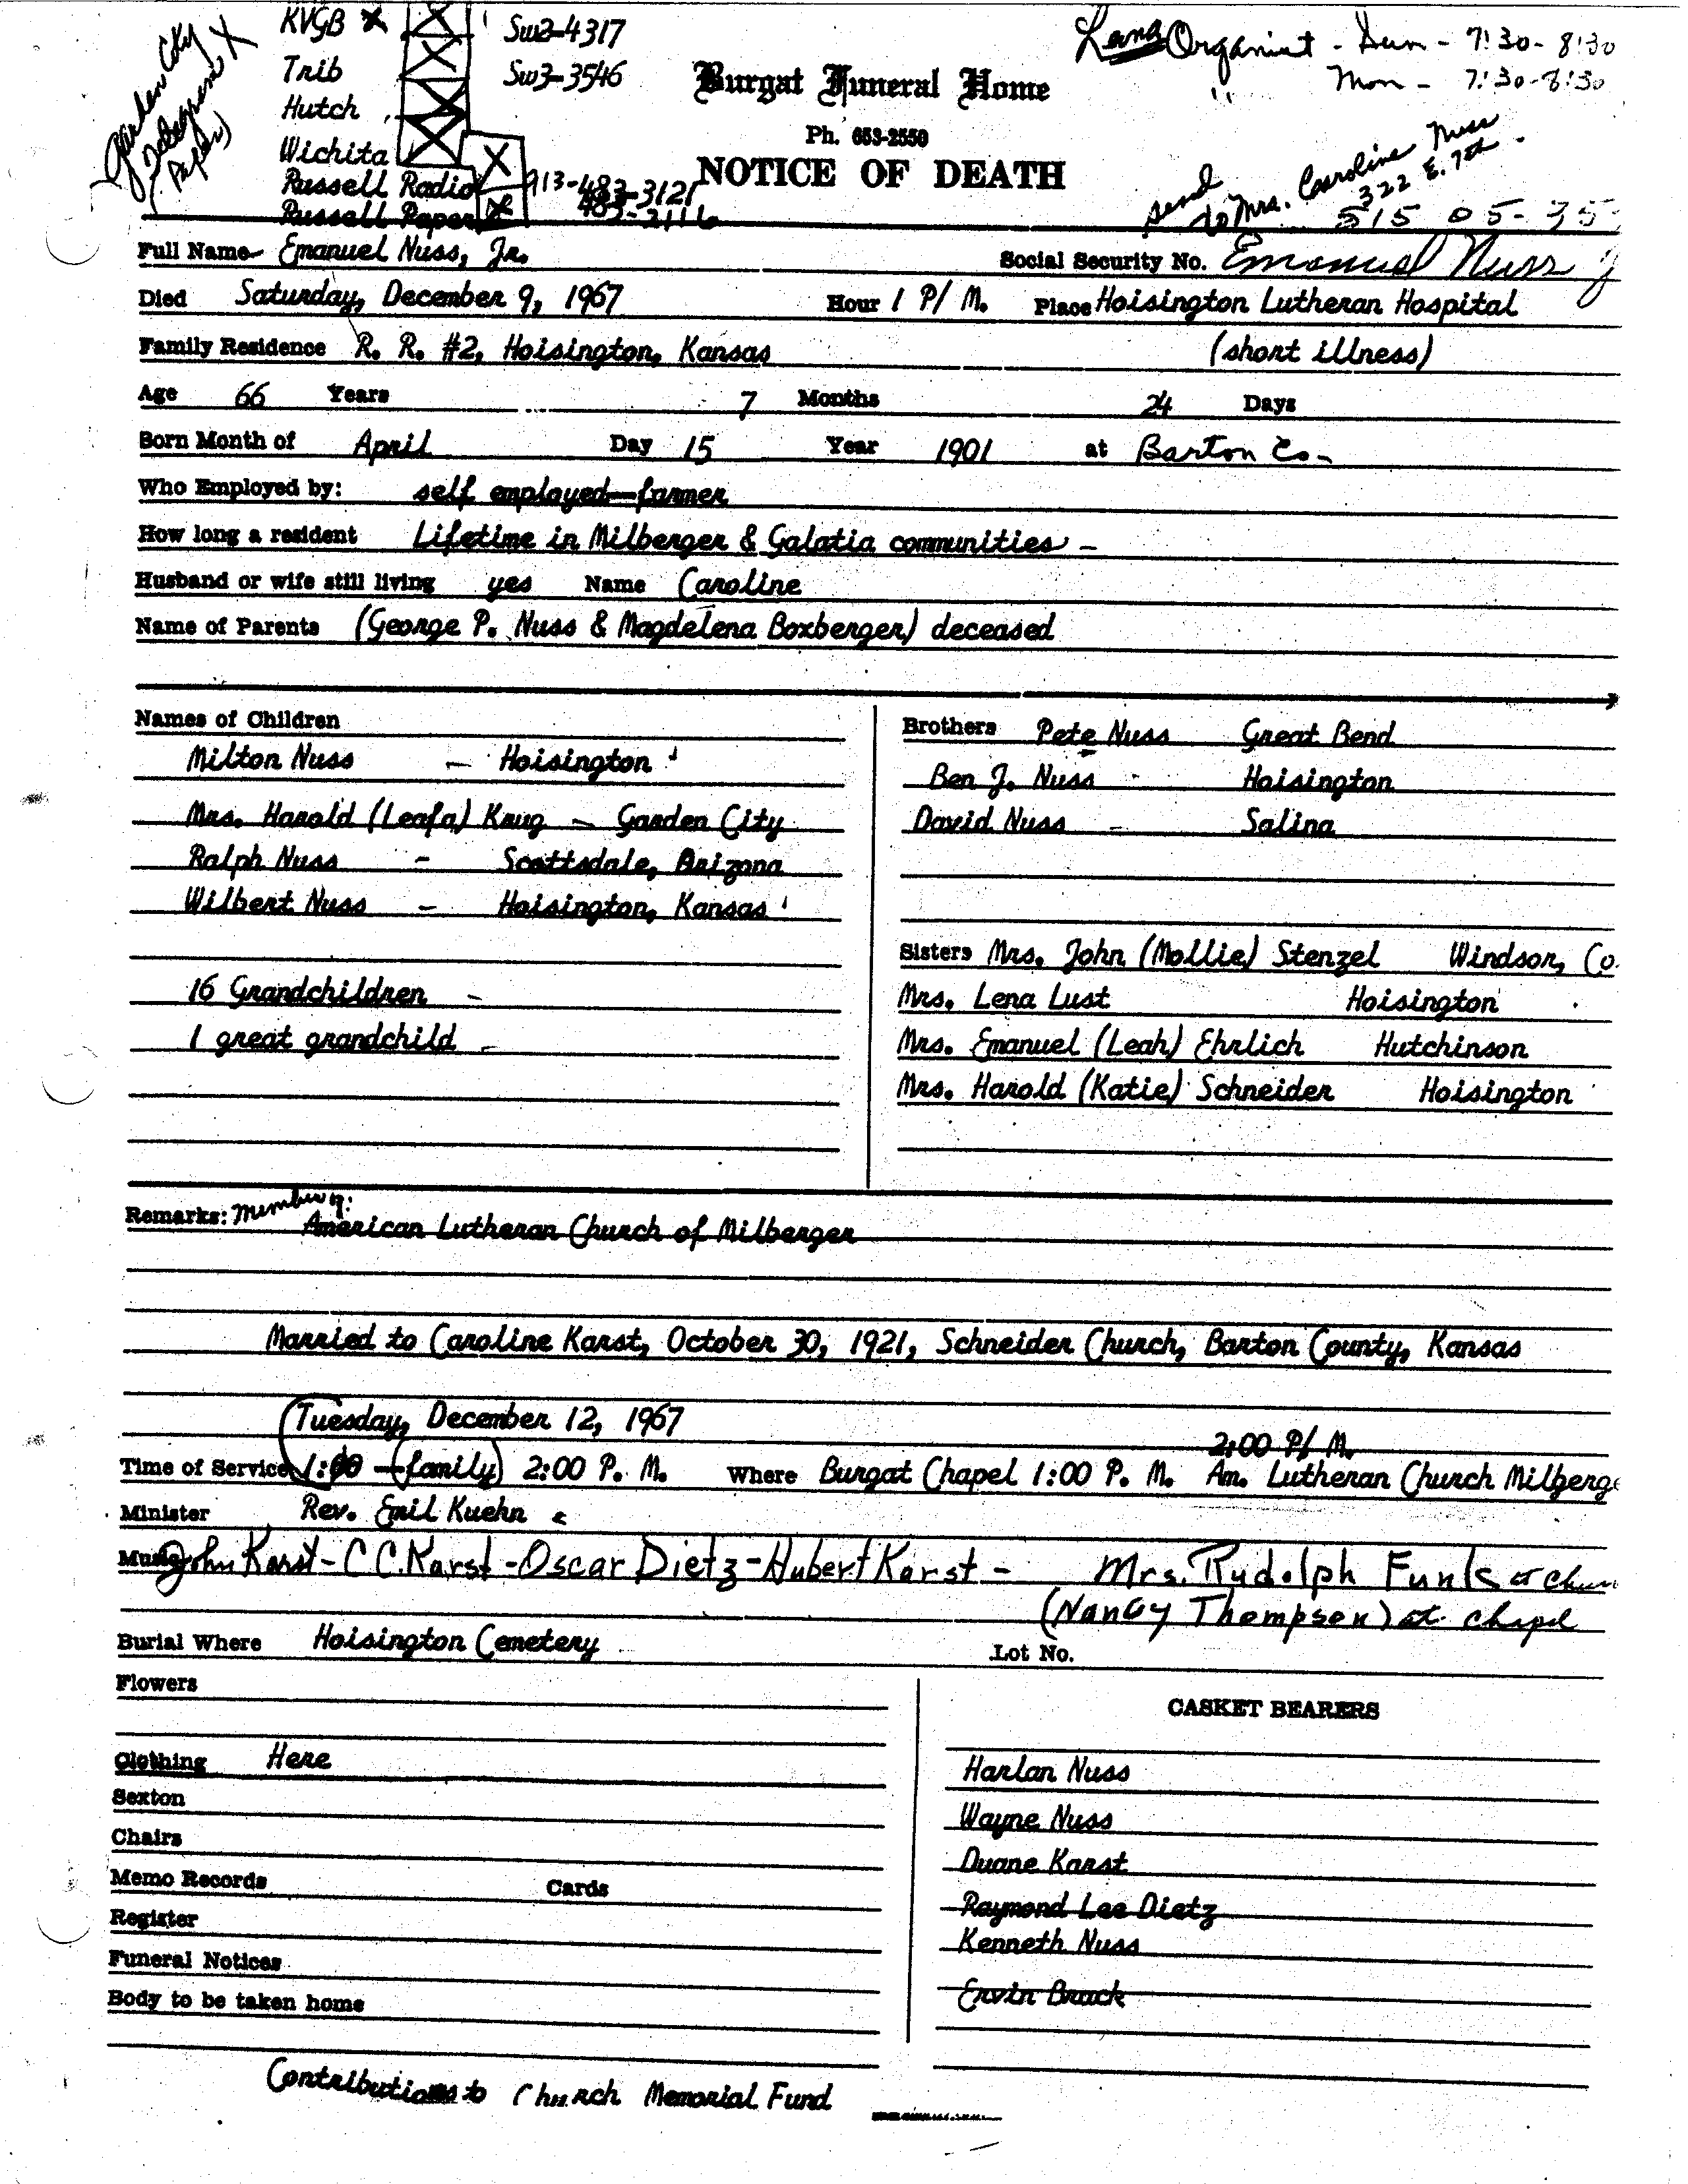 Garden City
Telegram X
(Paper)
KVGB X X Sw2-4317
Trib X Sw3-3546
Hutch X
Wichita X
Russell Radio X 913-483-3121
Russell Paper X 483-2116
Organist - Sun - 7:30-8:30
" Mon - 7:30-8:30
Burgat Funeral Home
Ph. 653-2550
NOTICE OF DEATH
Send to Mrs. Caroline Nuss
322 E. 7th.
515 05-35
Full Name Emanuel Nuss, Jr. Social Security No. Emanuel Nuss J
Died Saturday, December 9, 1967 Hour 1 P/ M. Place Hoisington Lutheran Hospital
Family Residence R. R. #2, Hoisington, Kansas (short illness)
Age 66 Years 7 Months 24 Days
Born Month of April Day 15 Year 1901 at Barton Co-
Who Employed by: self employed—farmer
How long a resident Lifetime in Milberger & Galatia communities -
Husband or wife still living yes Name Caroline
Name of Parents (George P. Nuss & Magdelena Boxberger) deceased
Names of Children
Milton Nuss - Hoisington
Mrs. Harold (Leafa) Krug - Garden City
Ralph Nuss - Scottsdale, Arizona
Wilbert Nuss - Hoisington, Kansas
16 Grandchildren -
1 great grandchild -
Brothers Pete Nuss Great Bend
Ben J. Nuss - Hoisington
David Nuss - Salina
Sisters Mrs. John (Mollie) Stenzel Windsor, Co.
Mrs. Lena Lust Hoisington
Mrs. Emanuel (Leah) Ehrlich Hutchinson
Mrs. Harold (Katie) Schneider Hoisington
Remarks: Member of:
American Lutheran Church of Milberger
Married to Caroline Karst, October 30, 1921, Schneider Church, Barton County, Kansas
Tuesday, December 12, 1967
2:00 P/ M.
Time of Service 1:00 - (family) 2:00 P. M. Where Burgat Chapel 1:00 P. M. Am. Lutheran Church Milberge
Minister Rev. Emil Kuehn
Music John Karst - C C. Karst - Oscar Dietz - Hubert Karst - Mrs. Rudolph Funk at Chur
(Nancy Thompsen) at chapel
Burial Where Hoisington Cemetery Lot No.
Flowers
Clothing Here
Sexton
Chairs
Memo Records Cards
Register
Funeral Notices
Body to be taken home
CASKET BEARERS
Harlan Nuss
Wayne Nuss
Duane Karst
Raymond Lee Dietz
Kenneth Nuss
Ervin Brack
Contributions to Church Memorial Fund